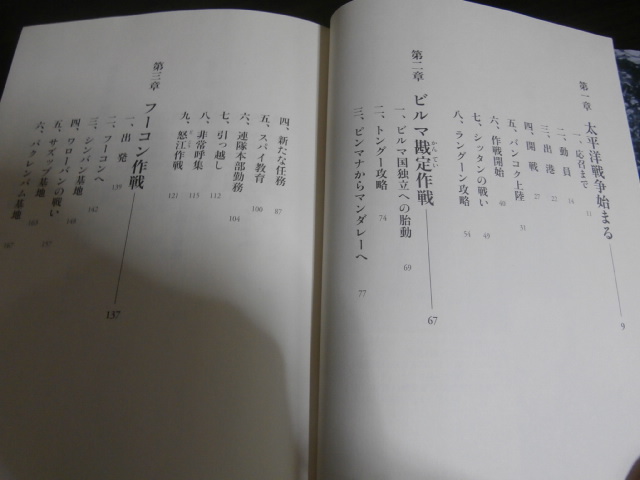 第一章　太平洋戦争始まる　9
一、応召まで　11
二、動員　14
三、出港　22
四、開戦　27
五、バンコク上陸　31
六、作戦開始　40
七、シッタンの戦い　49
八、ラングーン攻略　54
第二章　ビルマ戡定作戦　67
かんてい
一、ビルマ国独立への胎動　69
二、トングー攻略　74
三、ピンマナからマンダレーへ　77
四、新たな任務　87
五、スパイ教育　100
六、連隊本部勤務　104
七、引っ越し　112
八、非常呼集　115
九、怒江作戦　121
第三章　フーコン作戦　137
一、出発　139
二、フーコンへ　142
三、シンバン基地　148
四、ワローバンの戦い
五、サズップ基地　157
六、バクレンバム基地